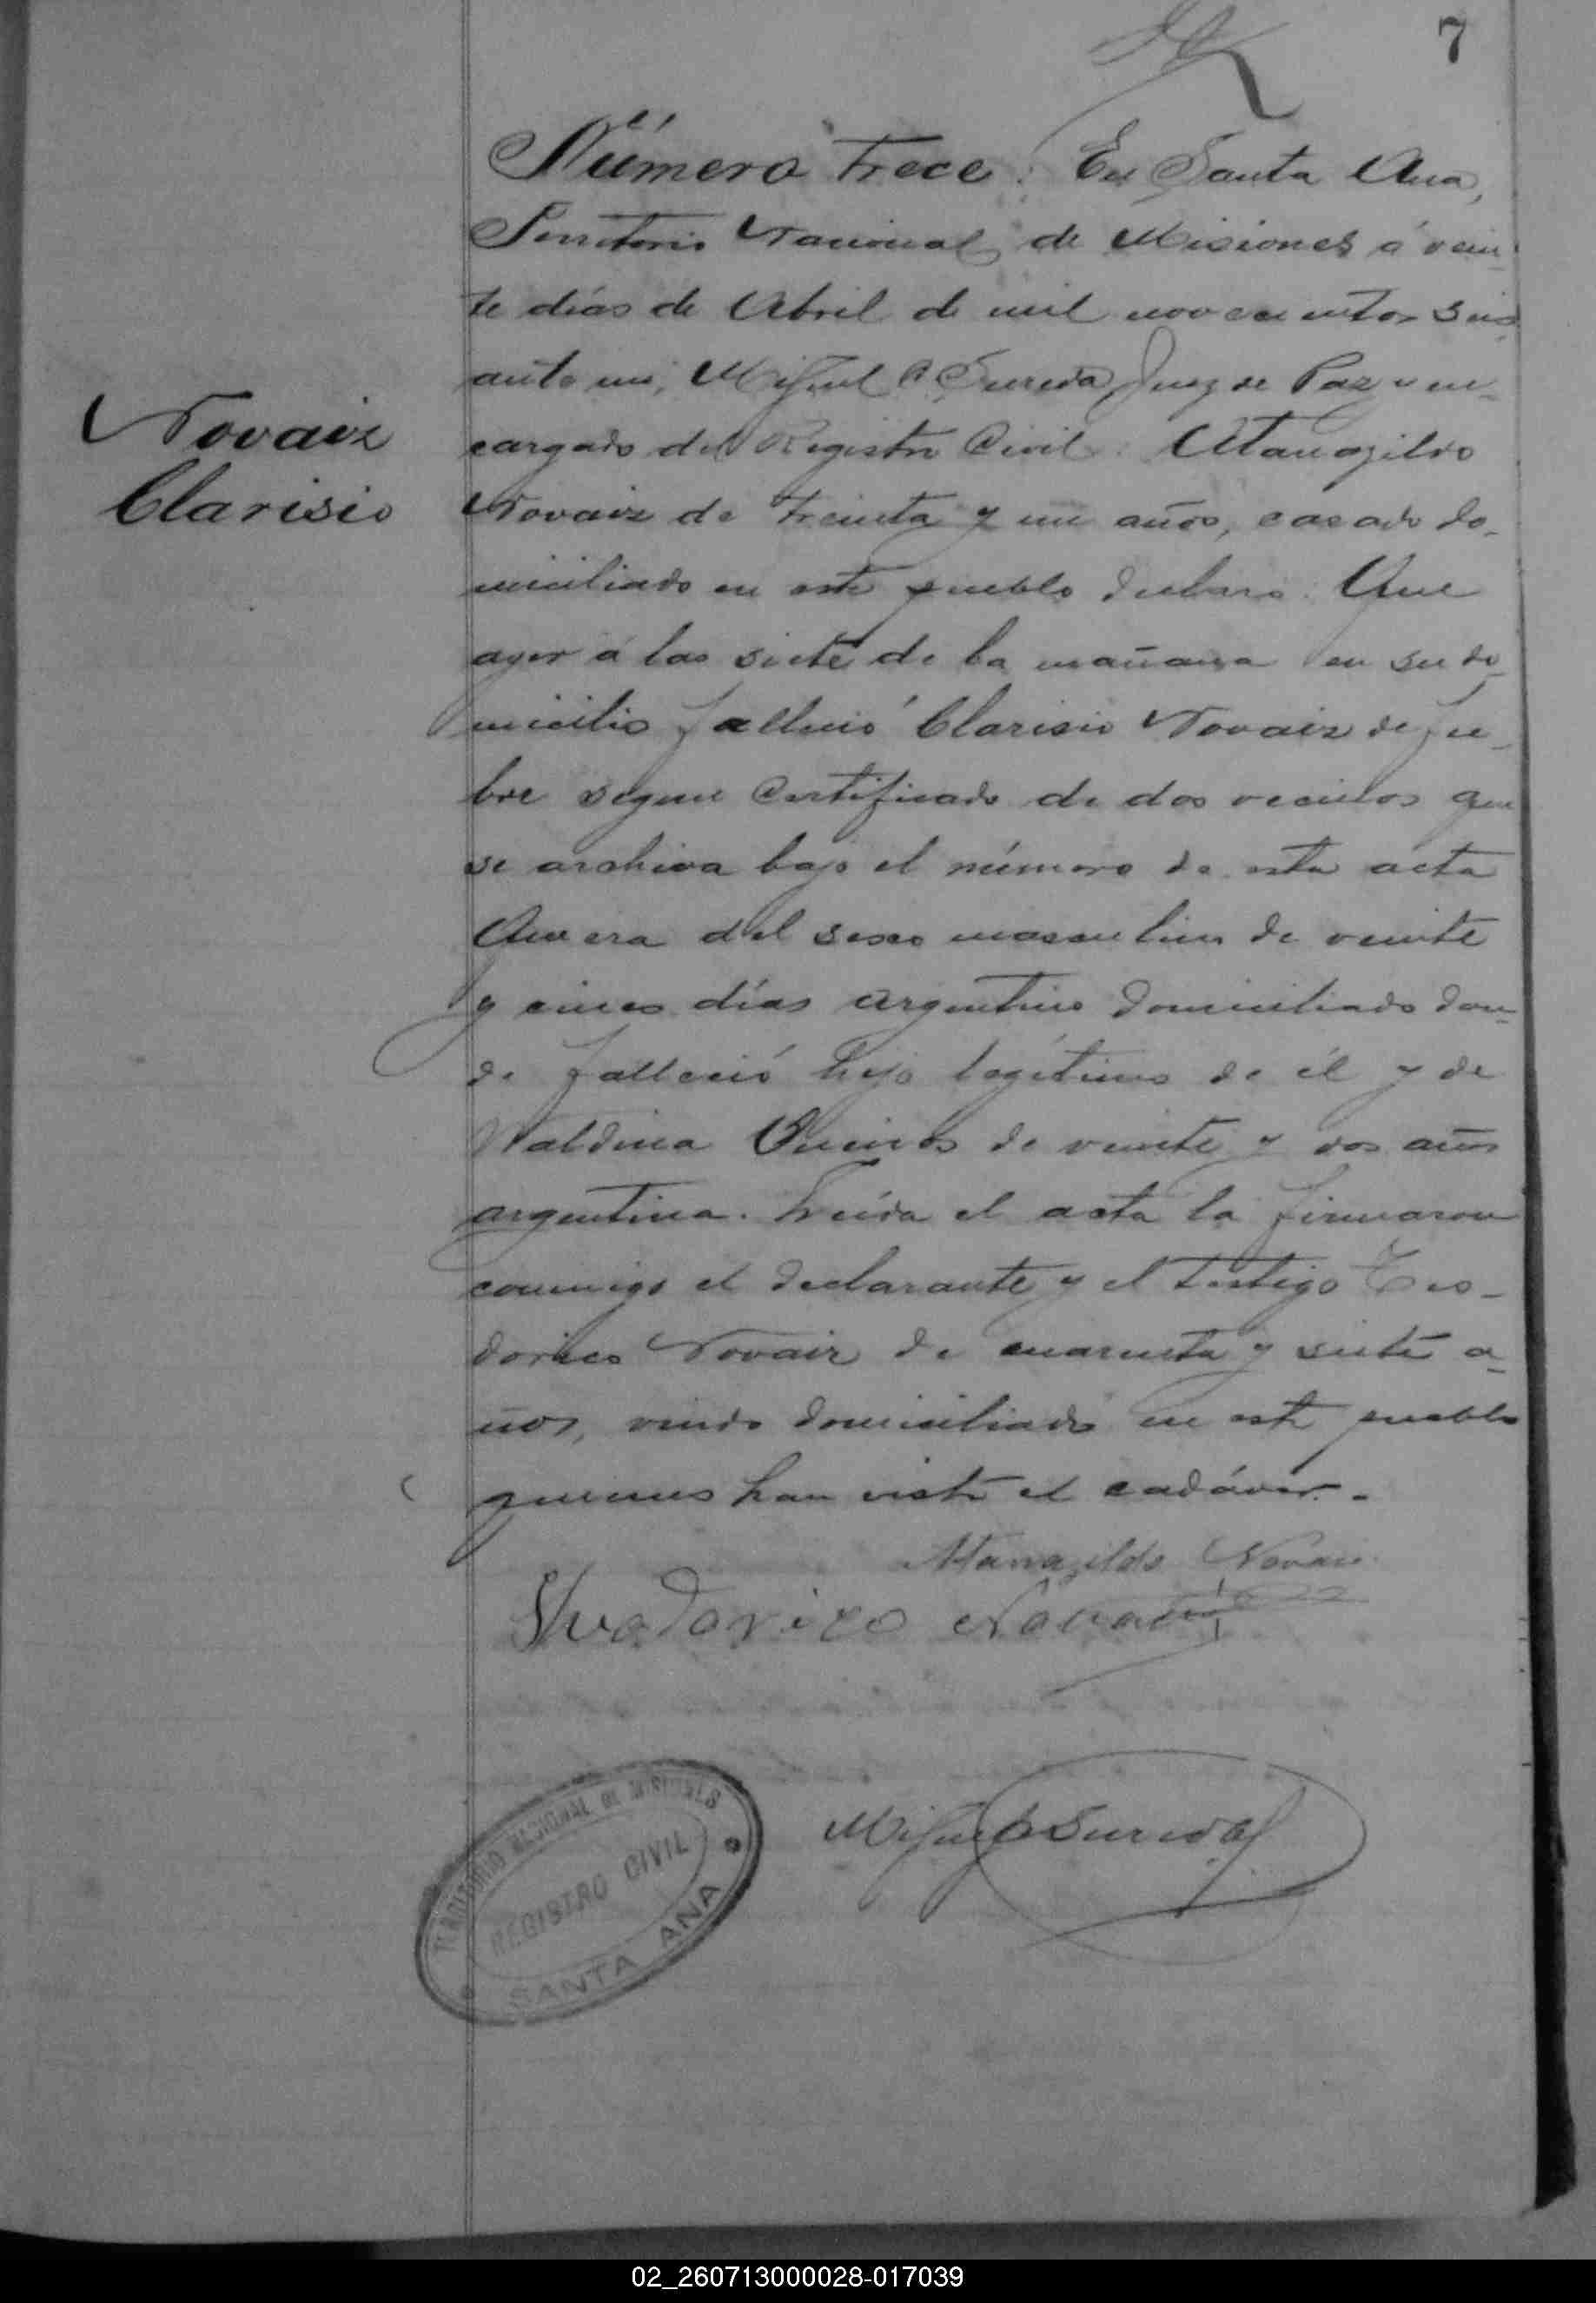 7
Número trece. En Santa Ana,
Territorio Nacional de Misiones á vein-
te días de Abril de mil novecientos seis
ante mi, Miguel Sureda, Juez de Paz y en-
cargado del Registro Civil: Atanagildo
Novaiz de treinta y un años, casado do-
miciliado en este pueblo declaro: Que
ayer á las siete de la mañana en su do-
micilio falleció Clarisio Novaiz de fie-
bre segun certificado de dos vecinos que
se archiva bajo el número de esta acta
Que era del sexo masculino de veinte
y cinco días argentino domiciliado don-
de falleció hijo legítimo de él y de
de veinte y dos años
argentina. Leída el acta la firmaron
conmigo el declarante y el testigo Teo-
dorico Novaiz de cuarenta y siete a-
ños, viudo domiciliado en este pueblo
quienes han visto el cadáver.-
Novaiz
Clarisio
Atanagildo Novais
Miguel Sureda
TERRITORIO NACIONAL DE MISIONES
REGISTRO CIVIL
SANTA ANA
02_260713000028-017039